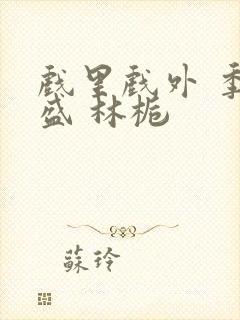 戲里戲外 季
盛 林栀
蘇玲